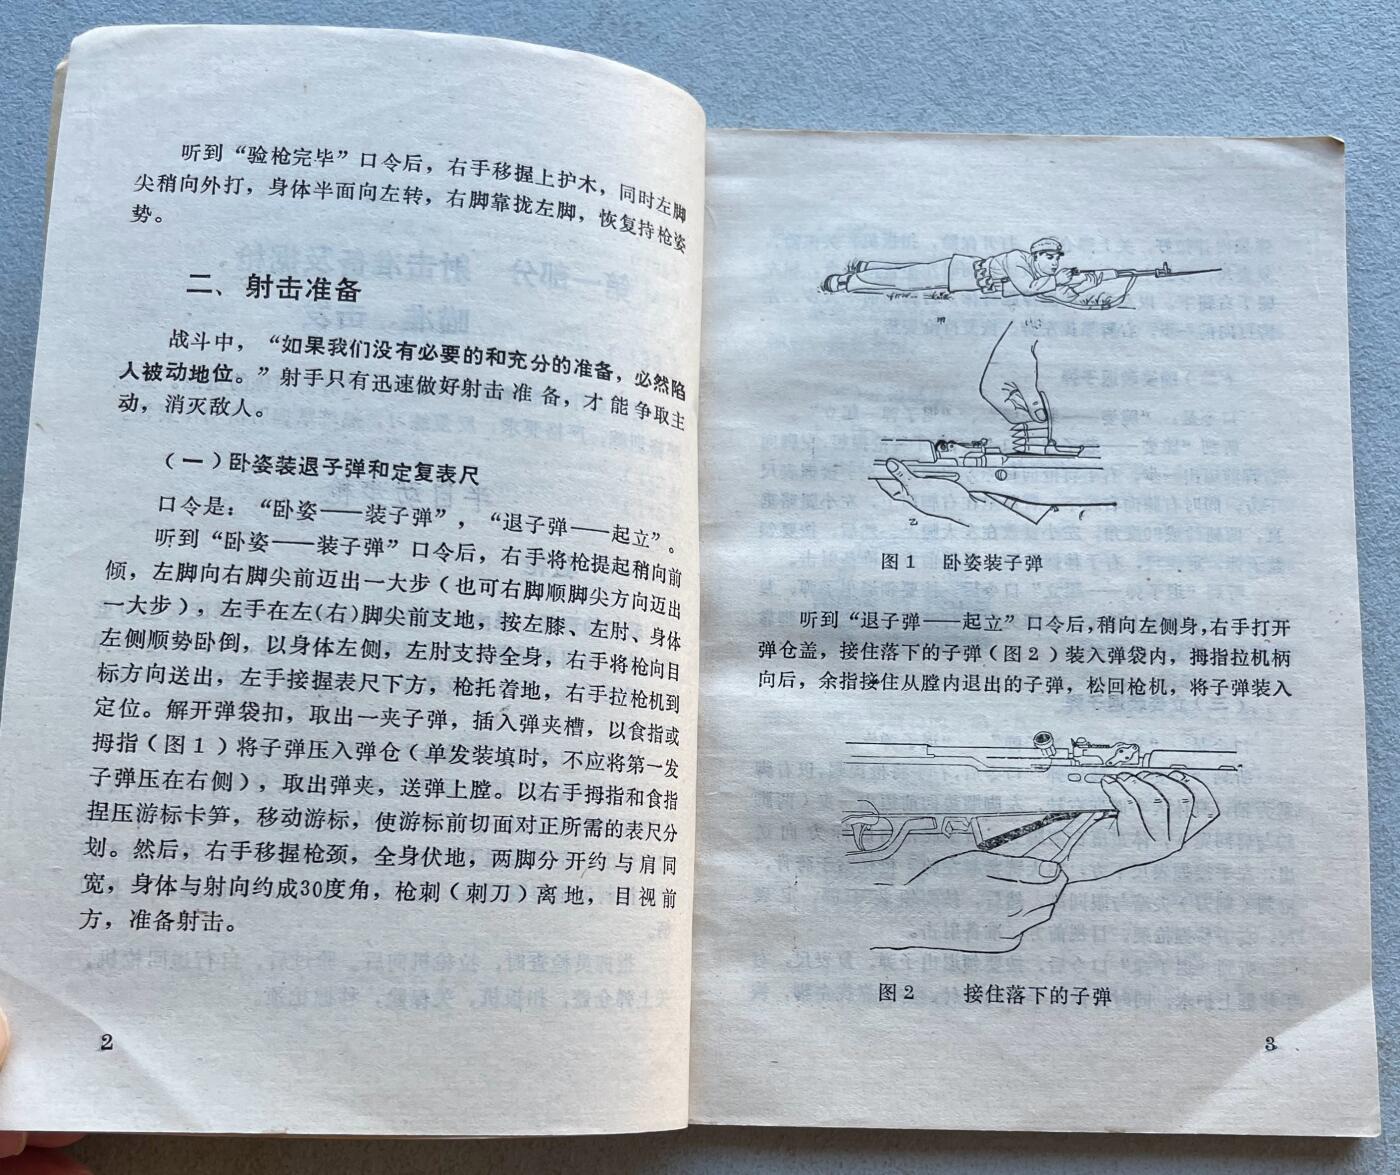 听到“验枪完毕”口令后，右手移握上护木，同时左脚
尖稍向外打，身体半面向左转，右脚靠拢左脚，恢复持枪姿
势。
二、射击准备
战斗中，“如果我们没有必要的和充分的准备，必然陷
人被动地位。”射手只有迅速做好射击准备，才能争取主
动，消灭敌人。
（一）卧姿装退子弹和定复表尺
口令是：“卧姿——装子弹”，“退子弹——起立”。
听到“卧姿——装子弹”口令后，右手将枪提起稍向前
倾，左脚向右脚尖前迈出一大步（也可右脚顺脚尖方向迈出
一大步），左手在左(右)脚尖前支地，按左膝、左肘、身体
左侧顺势卧倒，以身体左侧，左肘支持全身，右手将枪向目
标方向送出，左手接握表尺下方，枪托着地，右手拉枪机到
定位。解开弹袋扣，取出一夹子弹，插入弹夹槽，以食指或
拇指（图1）将子弹压入弹仓（单发装填时，不应将第一发
子弹压在右侧），取出弹夹，送弹上膛。以右手拇指和食指
捏压游标卡笋，移动游标，使游标前切面对正所需的表尺分
划。然后，右手移握枪颈，全身伏地，两脚分开约与肩同
宽，身体与射向约成30度角，枪刺（刺刀）离地，目视前
方，准备射击。
2
图1 卧姿装子弹
听到“退子弹——起立”口令后，稍向左侧身，右手打开
弹仓盖，接住落下的子弹（图2）装入弹袋内，拇指拉机柄
向后，余指接住从膛内退出的子弹，松回枪机，将子弹装入
图2 接住落下的子弹
3